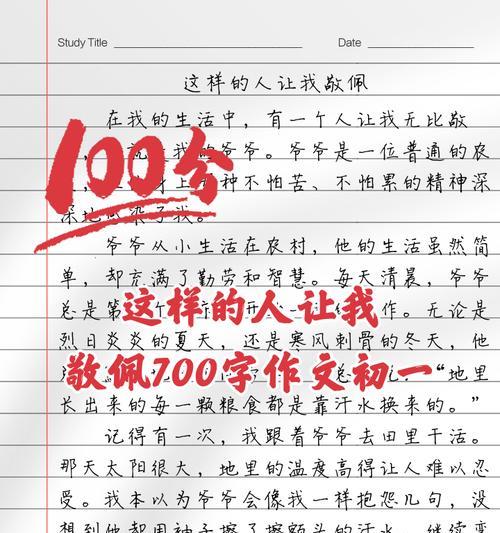 Study Title
Date
这样的人让我敬佩
100分
在我的生活中，有一个人让我无比敬
我的爷爷。爷爷是一位普通的农
种不怕苦、不怕累的精神深
深地感染了我。
爷爷从小生活在农村，他的生活虽然简
单，却充满了勤劳和智慧。每天清晨，爷爷
总是第一个
作。无论是
这样的人让我
烈日炎炎的夏天，还是寒风刺骨的冬天，他
敬佩700字作文初一
“地里
长出来的每一颗粮食都是靠汗水换来的。”
记得有一次，我跟着爷爷去田里干活。
那天太阳很大，地里的温度高得让人难以忍
受。我本以为爷爷会像我一样抱怨几句，没
想到他却用袖子擦了擦额头的汗水，继续弯